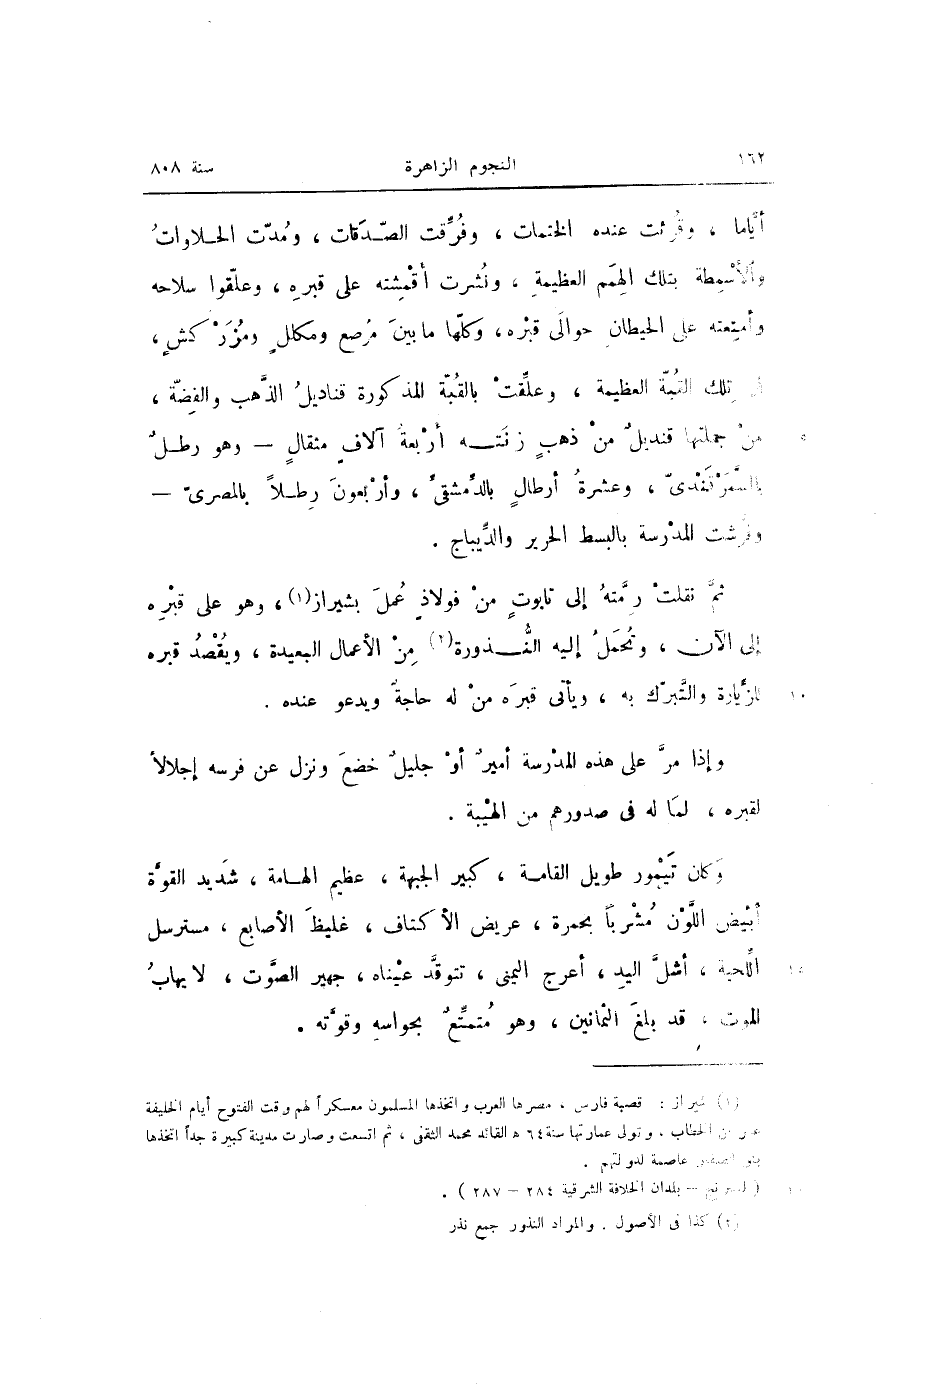 ١٦٢ النجوم الزاهرة سنة ٨٠٨
أيَّاما ، وقُرئت عنده الختمات ، وفُرِّقت الصّدَقات ، ومُدّت الحلاواتُ
والأسْمِطة بتلك الهِمَم العظيمةِ ، ونُشرت أقْمِشته على قبرِه ، وعلّقوا سلاحه
وأمتِعته على الحيطانِ حوالَى قبْره ، وكلّها ما بينَ مُرصع ومكللٍ ومُزَرْكشٍ ،
فى تِلك القبّة العظيمة ، وعلِّقتْ بالقُبّة المذكورة قناديلُ الذَّهب والفِضّة ،
منْ جملتها قنديلٌ منْ ذهبٍ زنَته أرْبعةُ آلافِ مثقالٍ — وهو رطلٌ ٥
بالسَّمَرْقَنْدىّ ، وعشرةُ أرطالٍ بالدِّمشقىِّ ، وأرْبعونَ رِطلاً بالمصرىّ —
وفُرِشت المدْرسة بالبسط الحرير والدِّيباج .
ثمَّ نقلتْ رِمَّتهُ إلى تابوتٍ منْ فولاذٍ عُملَ بشيراز(١) ، وهو على قبْرِه
إلى الآن ، وتُحمَلُ إليه النُّذورة(٢) مِنْ الأعمال البعيدة ، ويُقْصدُ قبره
للزِّيارة والتَّبرّك به ، ويأتى قبرَه منْ له حاجةٌ ويدعو عنده . ١٠
وإذا مرَّ على هذه المدْرسة أميرٌ أوْ جليلٌ خضعَ ونزل عن فرسه إجلالاً
لقبره ، لمَا له فى صدورهم من الهيْبة .
وَكان تَيْمور طويل القامة ، كبير الجبهة ، عظيم الهامة ، شَديد القوّة
أبْيض اللَّوْن مُشْرباً بحمرة ، عريض الأكتاف ، غليظَ الأصابع ، مسترسل
اللِّحية ، أشلَّ اليدِ ، أعرج اليمنى ، تتوقدَّ عيْناه ، جهير الصَّوت ، لا يهابُ ١٥
الموت ، قد بلغَ الثمانين ، وهو مُتمتِّعٌ بحواسهِ وقوَّته .
(١) شيراز : قصبة فارس ، مصرها العرب واتخذها المسلمون معسكراً لهم وقت الفتوح أيام الخليفة
عمر بن الخطاب ، وتولى عمارتها سنة ٦٤ ه القائد محمد الثقفى ، ثم اتسعت وصارت مدينة كبيرة جداً اتخذها
بنو الصفار عاصمة لدولتهم .
( لسترنج — بلدان الخلافة الشرقية ٢٨٤ — ٢٨٧ ) .
(٢) كذا فى الأصول . والمراد النذور جمع نذر